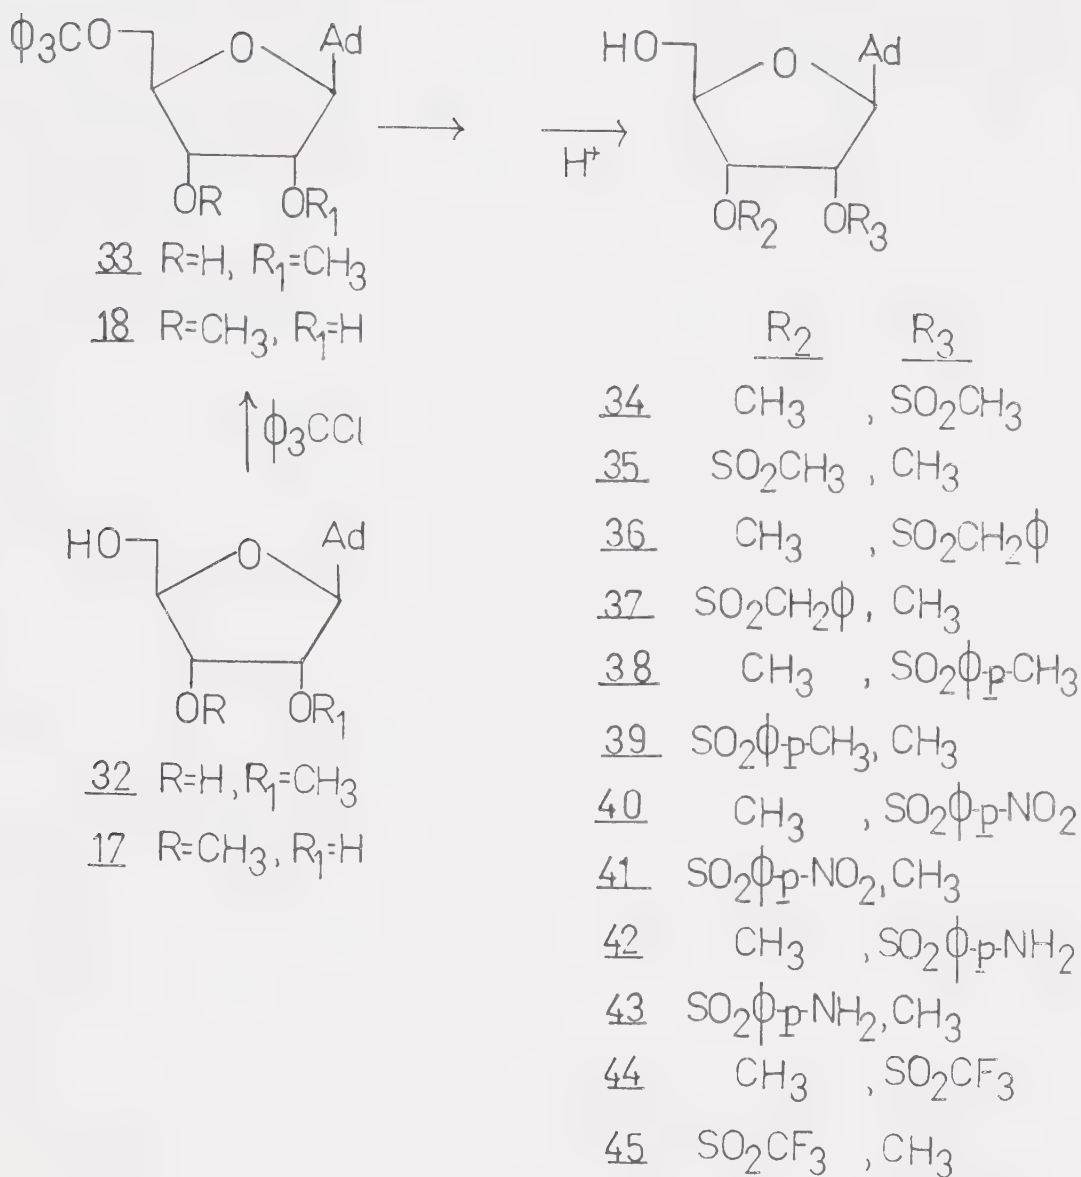 ϕ₃CO O Ad
OR OR₁
33 R=H, R₁=CH₃
18 R=CH₃, R₁=H
ϕ₃CCl
HO O Ad
OR OR₁
32 R=H, R₁=CH₃
17 R=CH₃, R₁=H
H⁺
HO O Ad
OR₂ OR₃
R₂ R₃
34 CH₃ , SO₂CH₃
35 SO₂CH₃ , CH₃
36 CH₃ , SO₂CH₂ϕ
37 SO₂CH₂ϕ, CH₃
38 CH₃ , SO₂ϕ-p-CH₃
39 SO₂ϕ-p-CH₃, CH₃
40 CH₃ , SO₂ϕ-p-NO₂
41 SO₂ϕ-p-NO₂, CH₃
42 CH₃ , SO₂ϕ-p-NH₂
43 SO₂ϕ-p-NH₂, CH₃
44 CH₃ , SO₂CF₃
45 SO₂CF₃ , CH₃